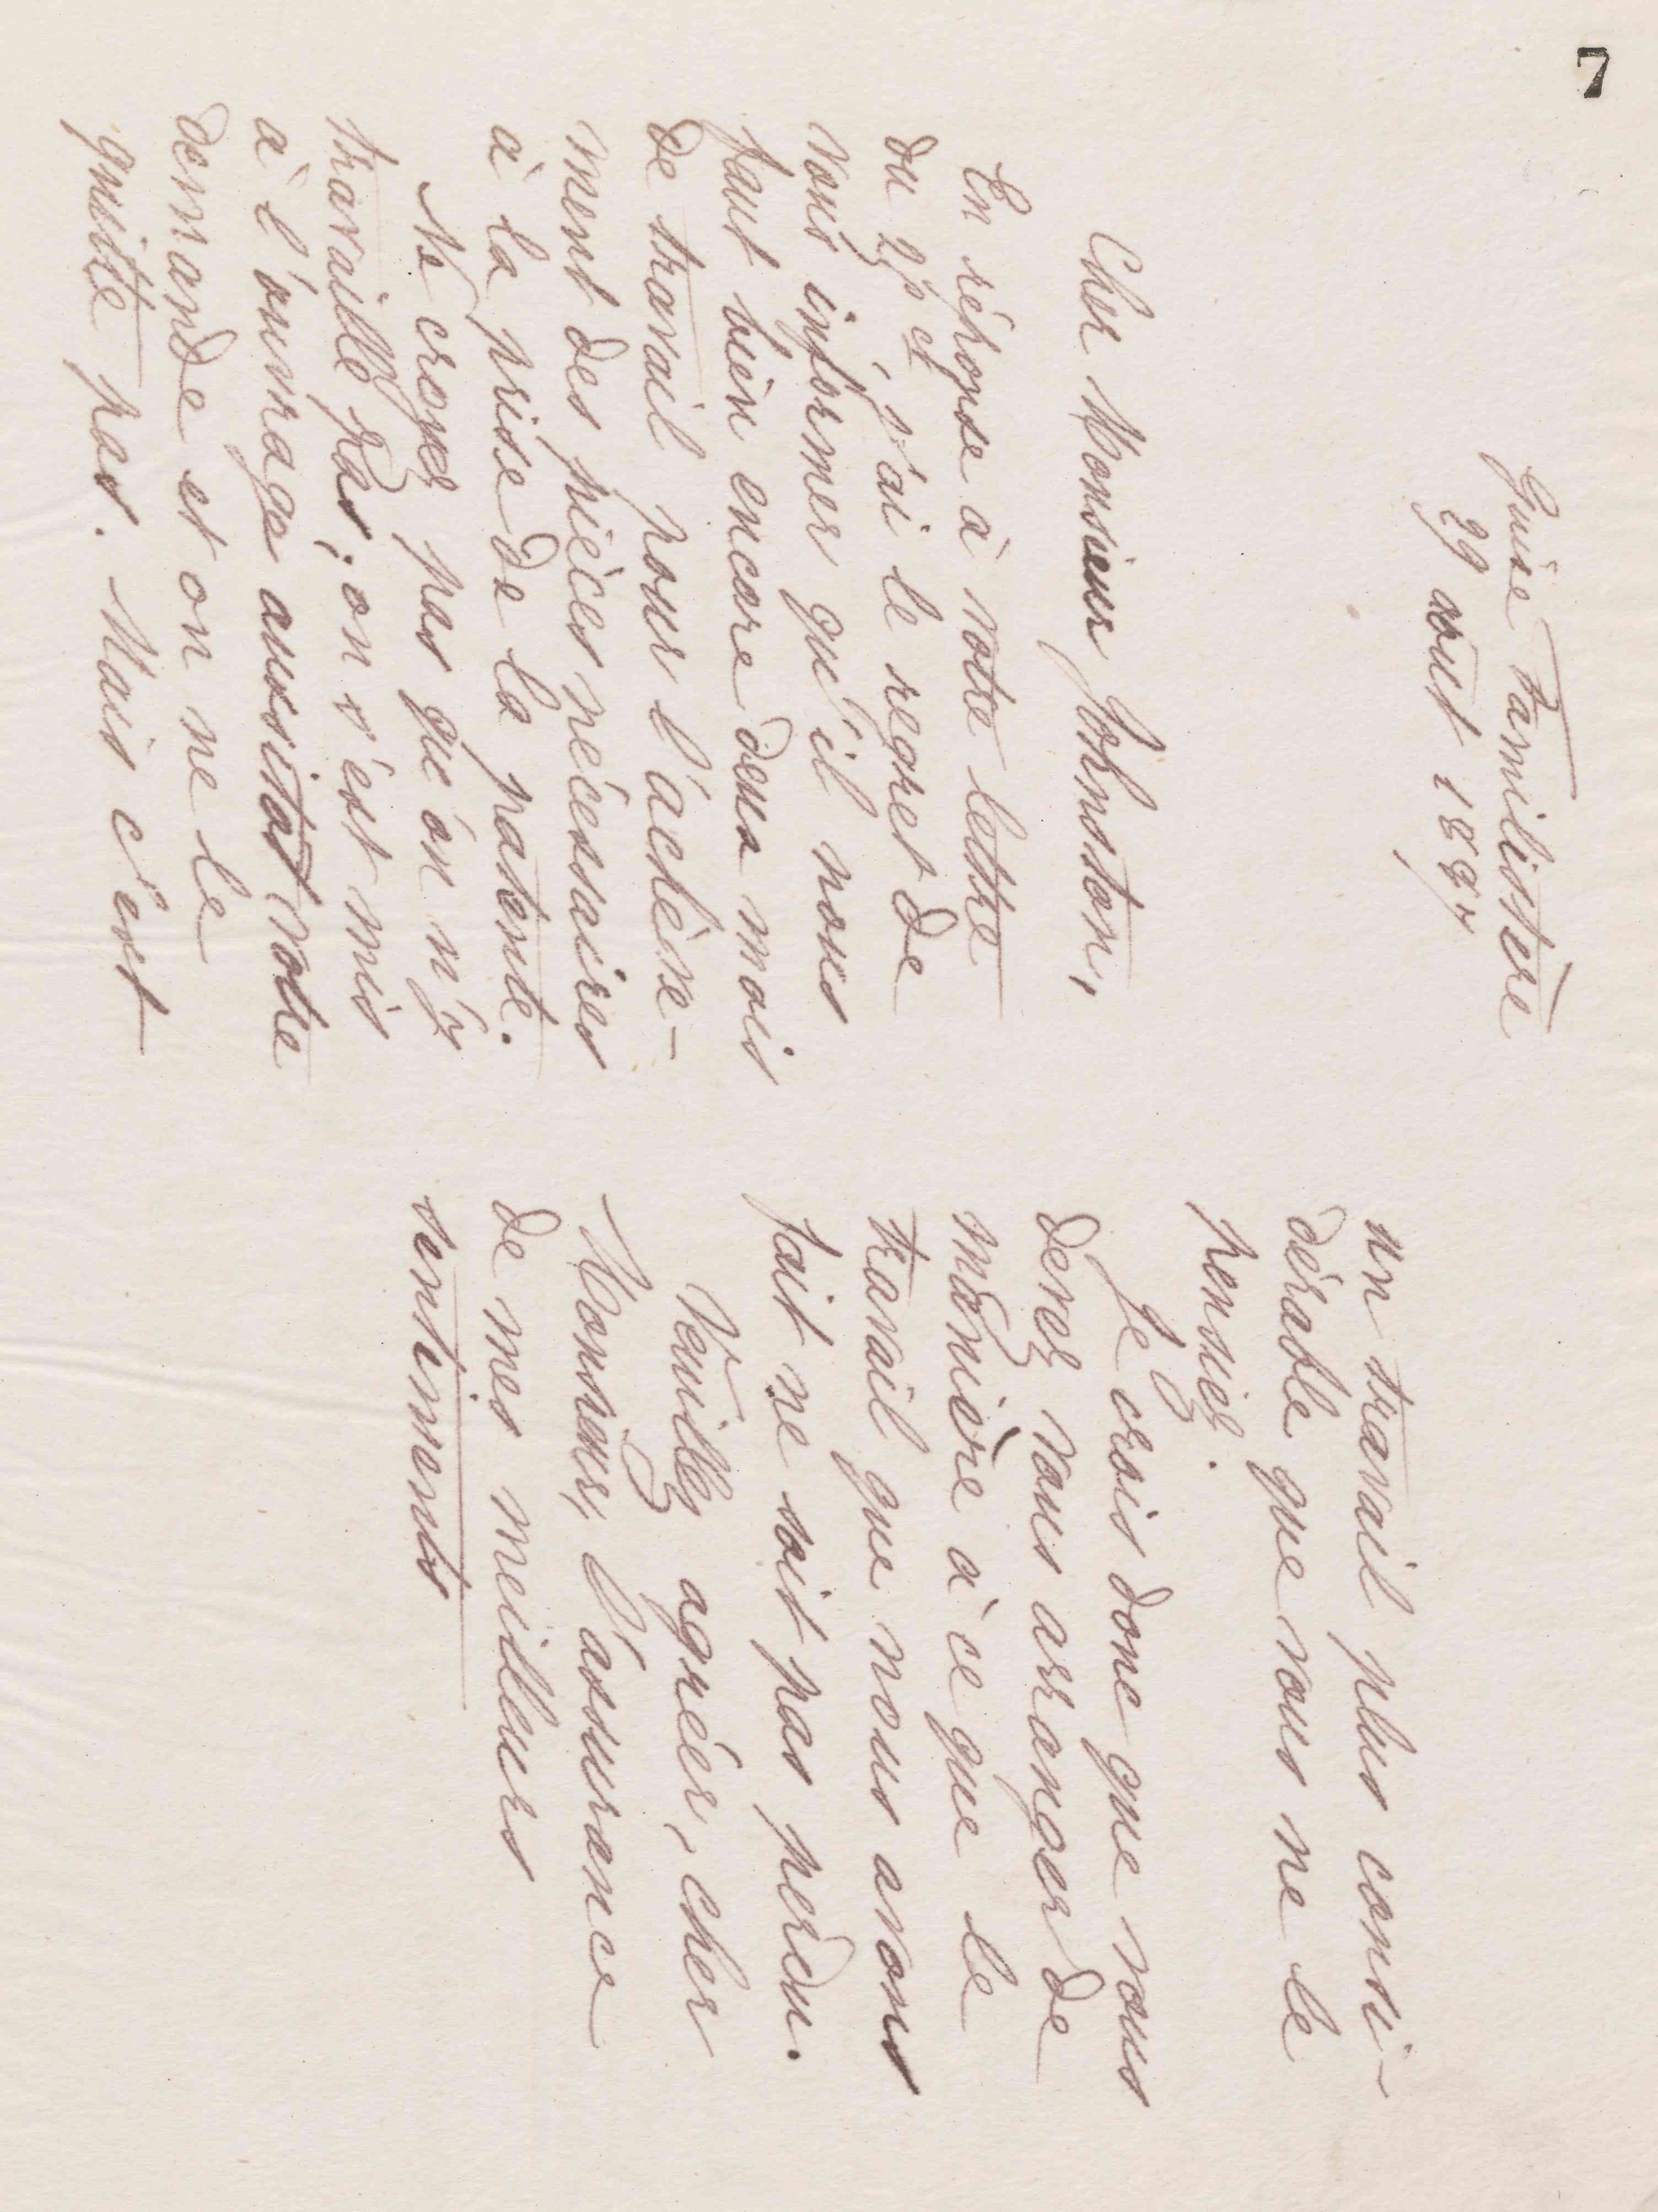 7
Guise Familistère
29 aout 1887
Cher Monsieur Johnston,
En réponse à votre lettre
du ct, j'ai le regret de
vous informer qu'il nous
faut bien encore deux mois
de travail pour l'achève-
ment des pièces nécessaires
à la prise de la patente.
Ne croyez pas qu'on n'y
travaille pas; on s'est mis
à l'ouvrage aussitot votre
demande et on ne le
quitte pas. Mais c'est
un travail plus consi-
dérable que vous ne le
pensiez.
Je crois donc que vous
devez vous arranger de
manière à ce que le
travail que nous avons
fait ne soit pas perdu.
Veuillez agréer, cher
Monsieur, l'assurance
de mes meilleurs
sentiments